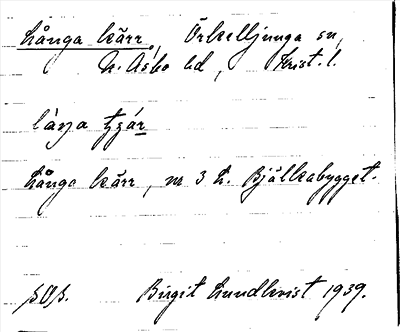 Långa kärr, Örkelljunga sn,
N. Åsbo hd, Krist. l.
Långa kärr, nr 3 L. Bjälkabygget.
SOS. Birgit Lundkvist 1939.